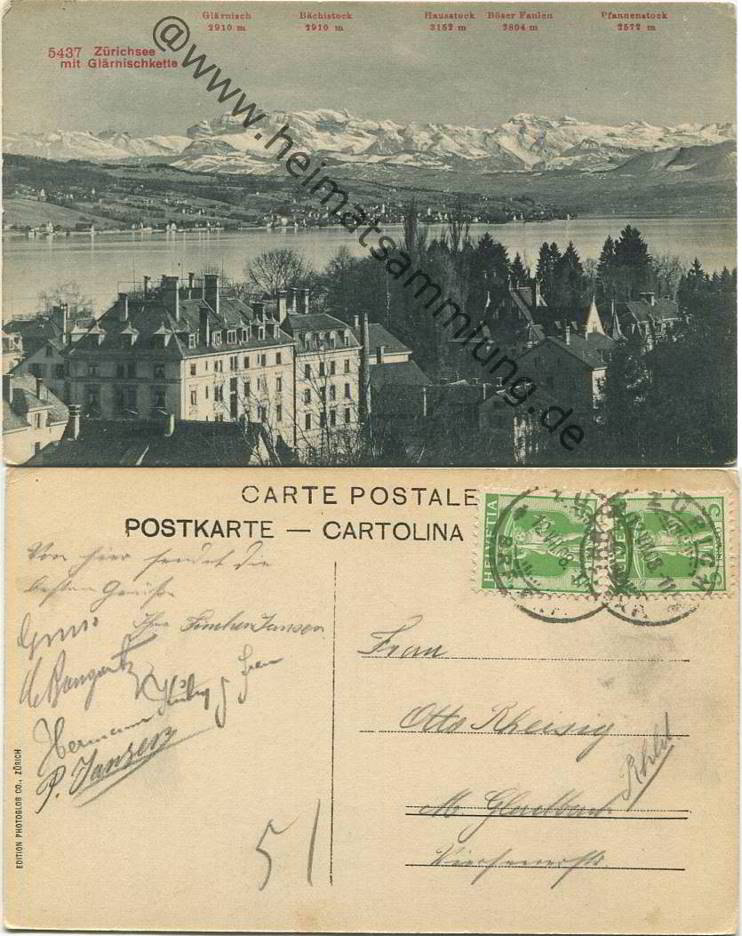 Glärnisch Bächistock Hausstock Böser Faulen Pfannenstock
2910 m 2910 m 3152 m 2804 m 2572 m
5437 Zürichsee
mit Glärnischkette
@www.heimatsammlung.de
CARTE POSTALE
POSTKARTE — CARTOLINA
HELVETIA HELVETIA
ZÜRICH
Von hier sendet die
besten Grüße
Gruss Ihre Janson
Hermann
P. Janzen
Frau
Otto Rheisig
M. Gladbach Rhld
Viersenerstr.
51
EDITION PHOTOGLOB CO., ZÜRICH